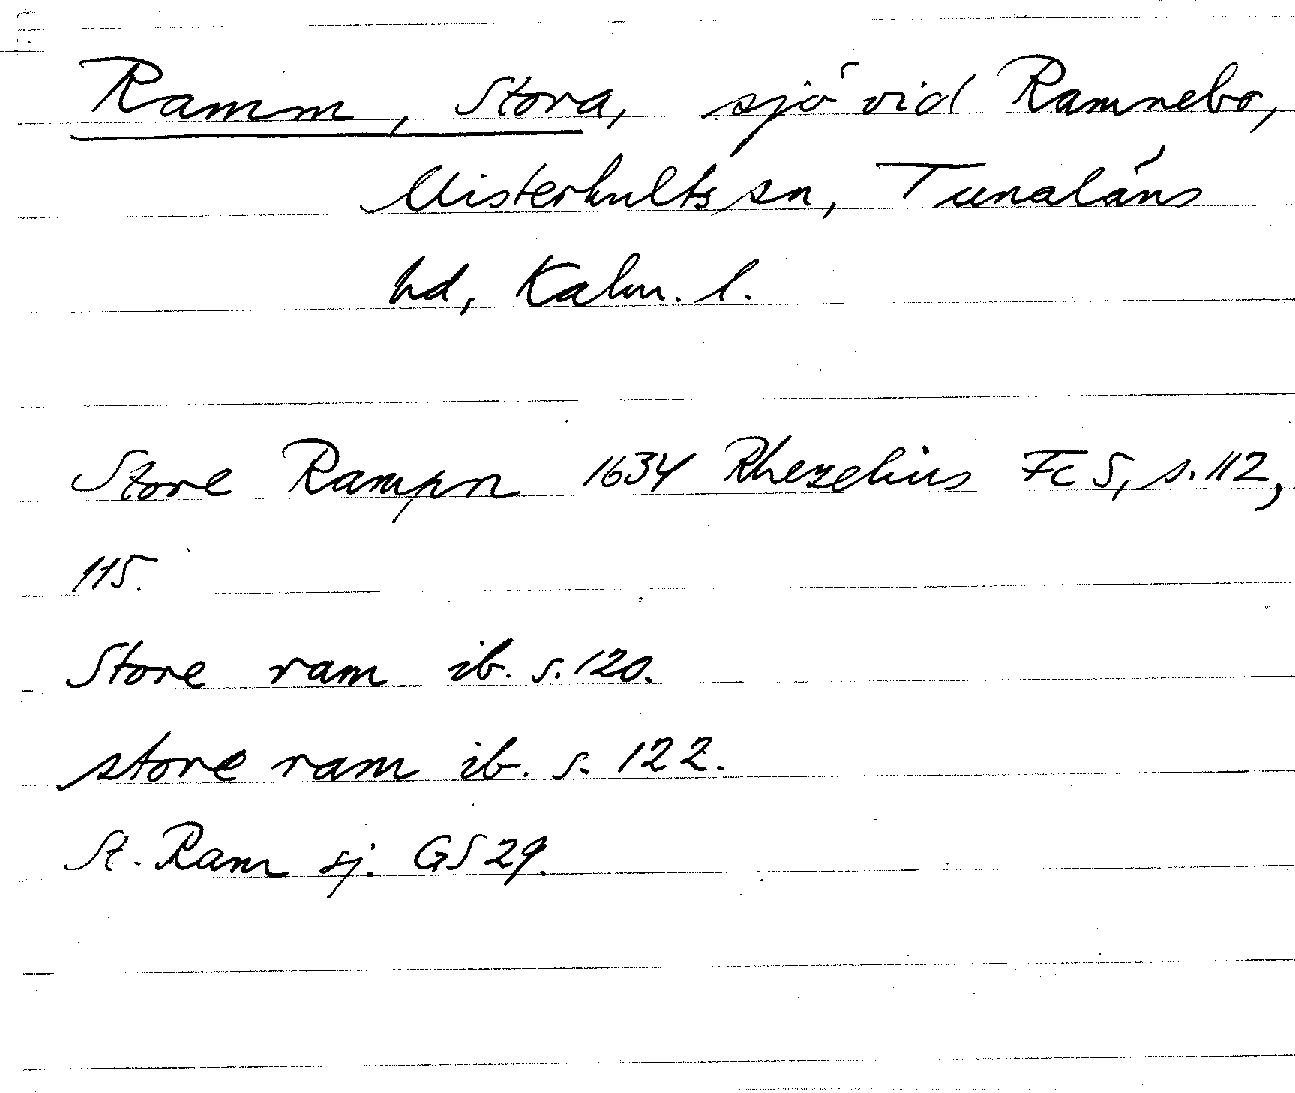 Ramm, Stora, sjö vid Ramnebo,
Misterhults sn, Tunaläns
hd, Kalm. l.
Store Rampn 1634 Rhezelius Fc 5, s. 112,
115.
Store ram ib. s. 120.
store ram ib. s. 122.
St. Ram sj. GS 29.